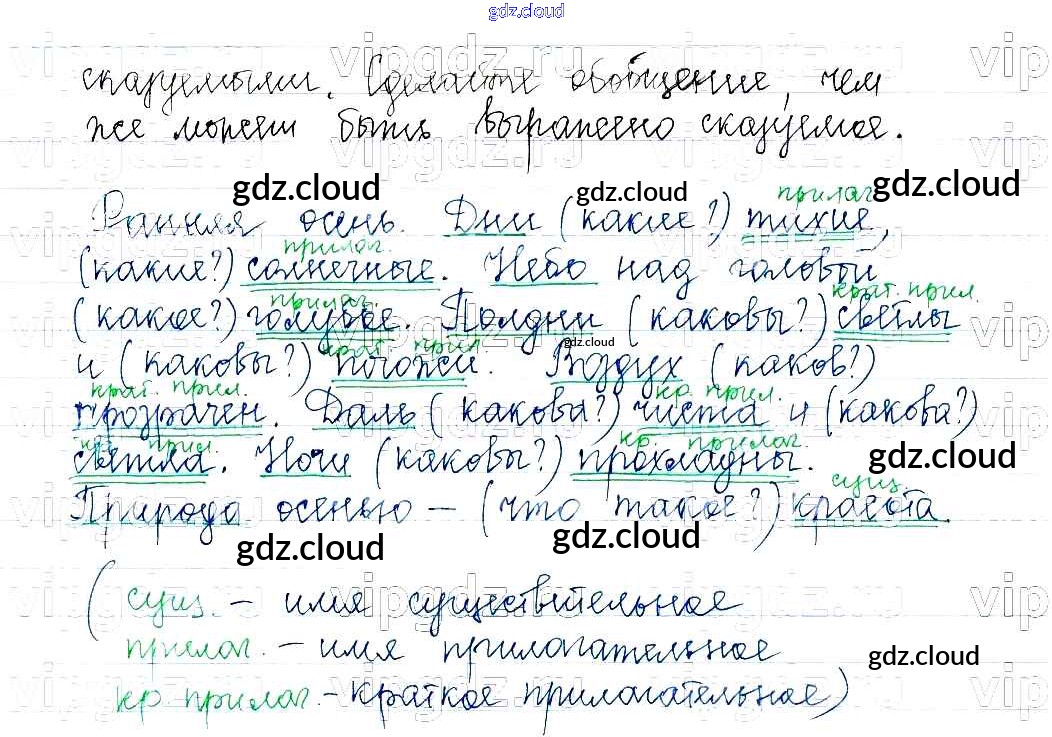 gdz.cloud
сказуемыми. Сделайте обобщение, чем
же может быть выражено сказуемое.
gdz.cloud gdz.cloud gdz.cloud
прилаг.
Ранняя осень. Дни (какие?) тихие,
прилаг.
(какие?) солнечные. Небо над головой
прилаг. крат. прил.
(какое?) голубое. Полдни (каковы?) светлы
gdz.cloud
крат. прил.
и (каковы?) погожи. Воздух (каков?)
крат. прил. кр. прил.
прозрачен. Даль (какова?) чиста и (какова?)
кр. прил. кр. прилаг.
светла. Ночи (каковы?) прохладны.
gdz.cloud
сущ.
Природа осенью – (что такое?) красота.
gdz.cloud gdz.cloud
(сущ. – имя существительное
прилаг. – имя прилагательное
gdz.cloud
кр. прилаг. – краткое прилагательное)